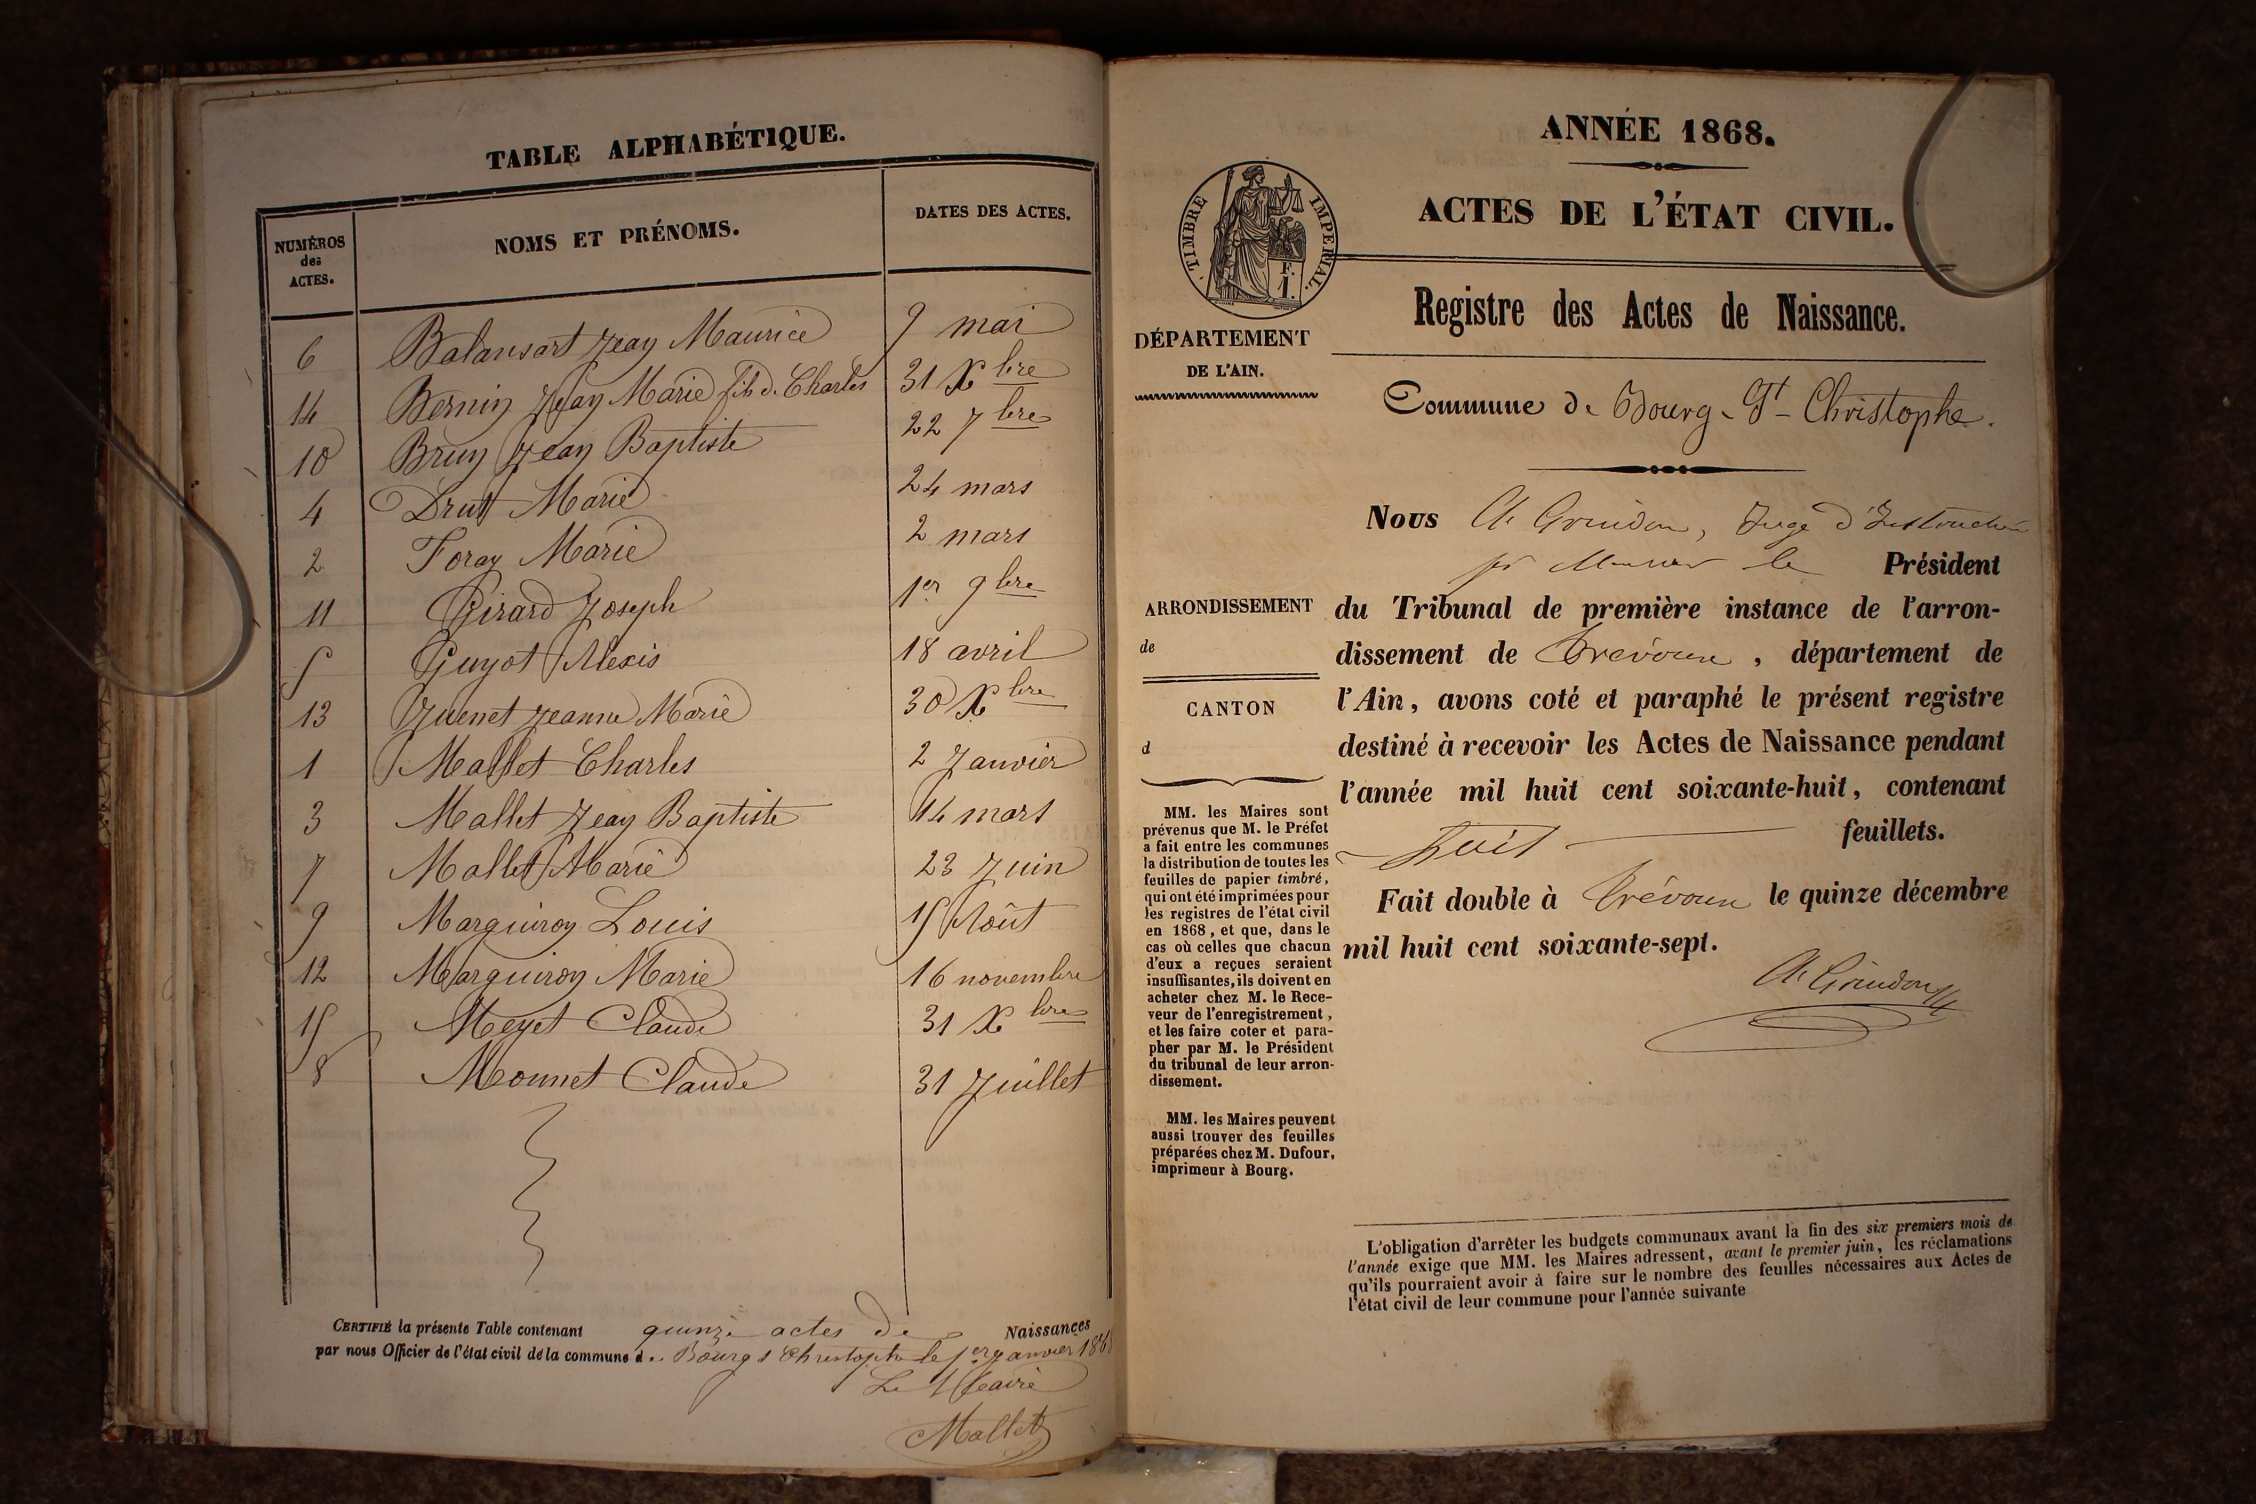 TABLE ALPHABÉTIQUE.
NUMÉROS des ACTES. NOMS ET PRÉNOMS. DATES DES ACTES.
6 Balansart Jean Maurice 9 mai
14 Bernin Jean Marie fils de Charles 31 Xbre
10 Brun Jean Baptiste 22 7bre
4 Drut Marie 24 mars
2 Foray Marie 2 mars
11 Girard Joseph 1er 9bre
5 Guyot Alexis 18 avril
13 Juenet Jeanne Marie 30 Xbre
1 Mallet Charles 2 Janvier
3 Mallet Jean Baptiste 14 mars
7 Mallet Marie 23 Juin
9 Marguiron Louis 15 Août
12 Marguiron Marie 16 novembre
15 Meyet Claude 31 Xbre
8 Monnet Claude 31 Juillet
CERTIFIÉ la présente Table contenant quinze actes de Naissances
par nous Officier de l'état civil de la commune de Bourg St Christophe le 1er Janvier 186
Le Maire
Mallet
ANNÉE 1868.
ACTES DE L'ÉTAT CIVIL.
TIMBRE IMPERIAL.
F.
1.
Registre des Actes de Naissance.
DÉPARTEMENT
DE L'AIN.
Commune de Bourg-St-Christophe.
Nous Juge d'Instruction
le Président
ARRONDISSEMENT
de
CANTON
d
du Tribunal de première instance de l'arron-
dissement de Trévoux, département de
l'Ain, avons coté et paraphé le présent registre
destiné à recevoir les Actes de Naissance pendant
l'année mil huit cent soixante-huit, contenant
huit feuillets.
Fait double à Trévoux le quinze décembre
mil huit cent soixante-sept.
MM. les Maires sont
prévenus que M. le Préfet
a fait entre les communes
la distribution de toutes les
feuilles de papier timbré,
qui ont été imprimées pour
les registres de l'état civil
en 1868, et que, dans le
cas où celles que chacun
d'eux a reçues seraient
insuffisantes, ils doivent en
acheter chez M. le Rece-
veur de l'enregistrement,
et les faire coter et para-
pher par M. le Président
du tribunal de leur arron-
dissement.
MM. les Maires peuvent
aussi trouver des feuilles
préparées chez M. Dufour,
imprimeur à Bourg.
L'obligation d'arrêter les budgets communaux avant la fin des six premiers mois de
l'année exige que MM. les Maires adressent, avant le premier juin, les réclamations
qu'ils pourraient avoir à faire sur le nombre des feuilles nécessaires aux Actes de
l'état civil de leur commune pour l'année suivante